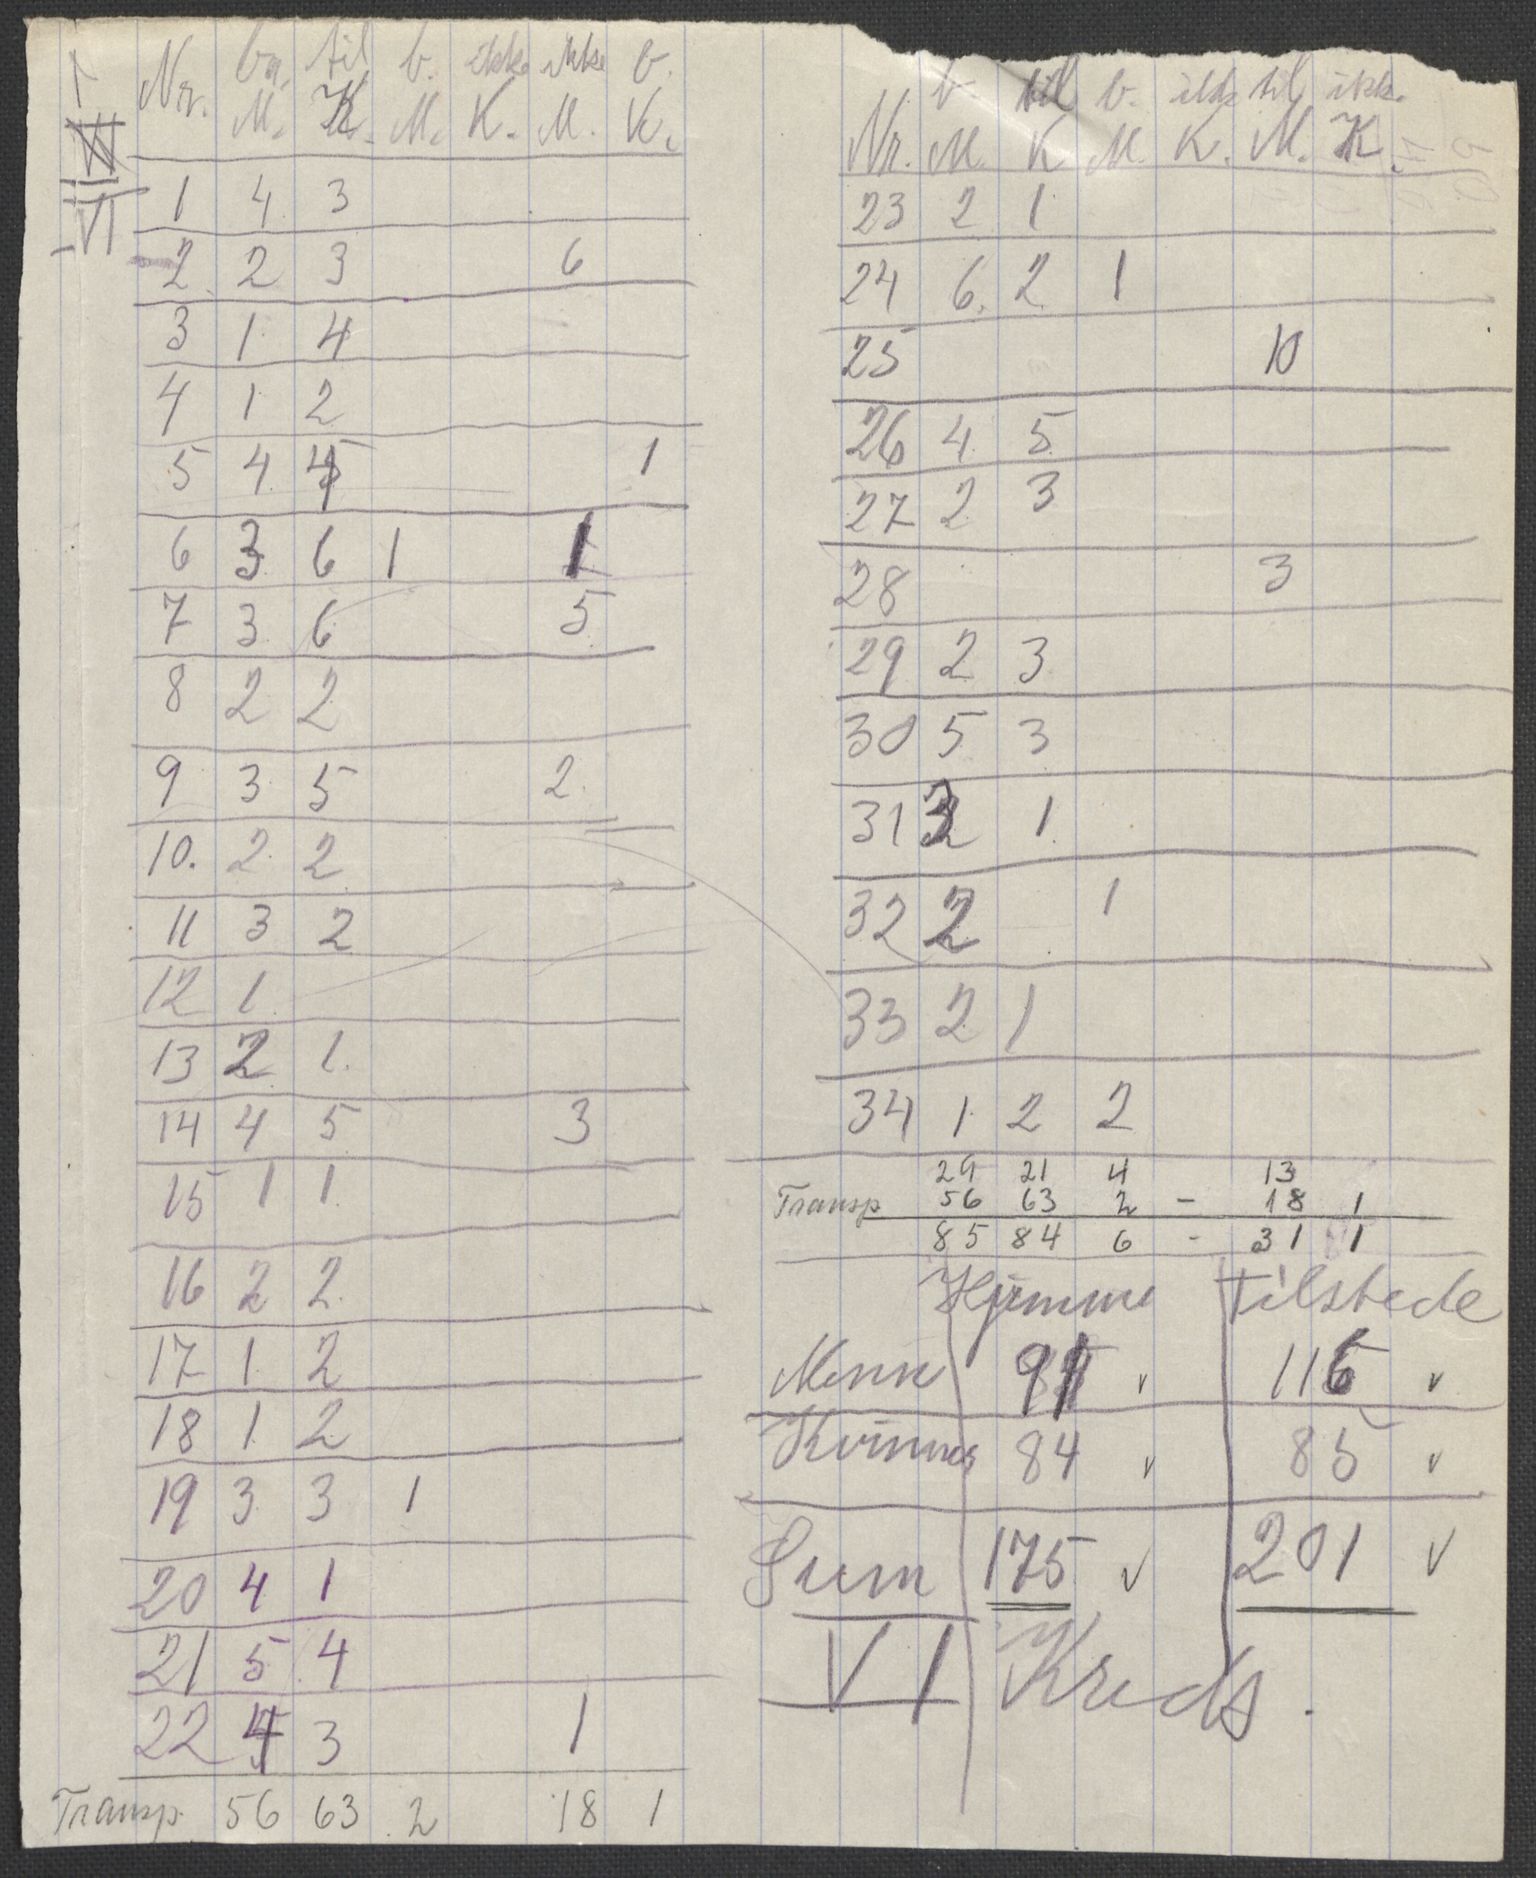 VI
Nr. b. til b. ikke ikke b.
M. K. M. K. M. K.
1 4 3
2 2 3 6
3 1 4
4 1 2
5 4 4 1
6 3 6 1 1
7 3 6 5
8 2 2
9 3 5 2
10. 2 2
11 3 2
12 1
13 2 1
14 4 5 3
15 1 1
16 2 2
17 1 2
18 1 2
19 3 3 1
20 4 1
21 5 4
22 4 3 1
Transp. 56 63 2 18 1
b. til b. ikke til ikke
Nr. M. K M K. M. K.
23 2 1
24 6 2 1
25 10
26 4 5
27 2 3
28 3
29 2 3
30 5 3
31 3 1
32 2 1
33 2 1
34 1 2 2
29 21 4 13
Transp 56 63 2 - 18 1
85 84 6 - 31 1
Hjemme Tilstede
Menn 91 v 116 v
Kvinner 84 v 85 v
Sum 175 v 201 v
VI Kreds.